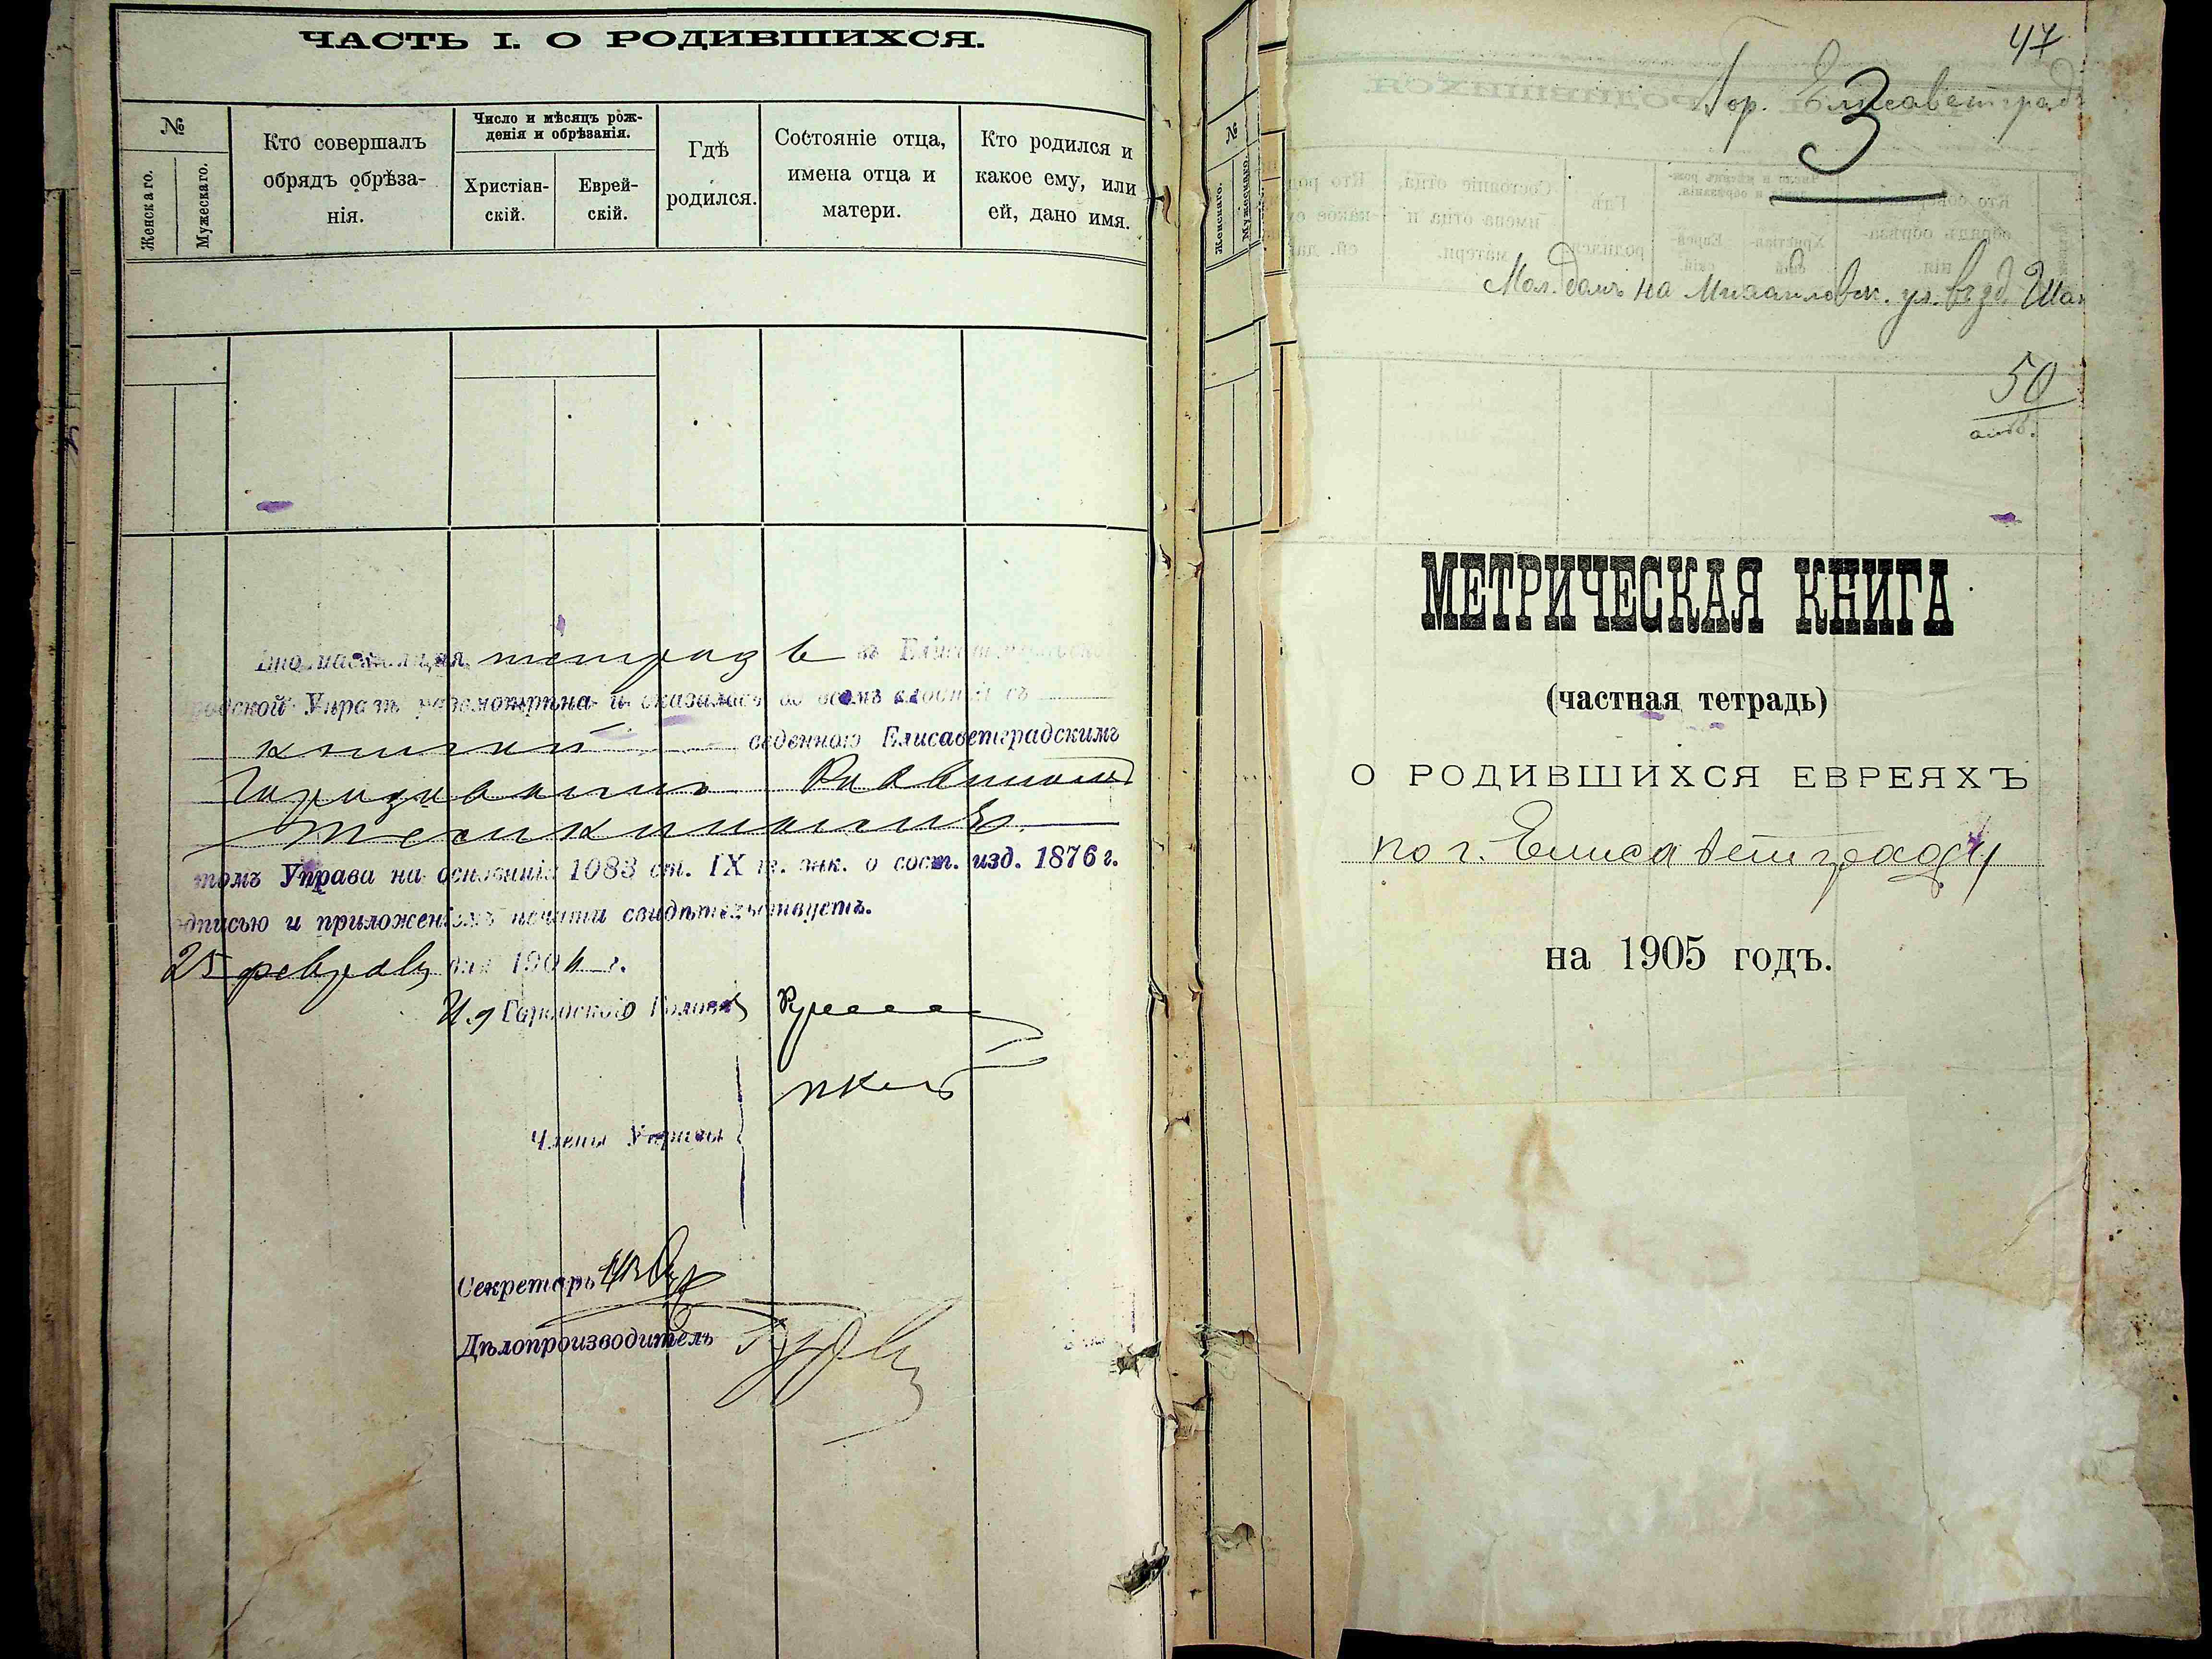 ЧАСТЬ I. О РОДИВШИХСЯ.
№
Женскаго.
Мужескаго.
Кто совершалъ
обрядъ обрѣза-
нія.
Число и мѣсяцъ рож-
денія и обрѣзанія.
Христіан-
скій.
Еврей-
скій.
Гдѣ
родился.
Состояніе отца,
имена отца и
матери.
Кто родился и
какое ему, или
ей, дано имя.
тетрадь въ
Управѣ разсмотрѣна и оказалась во всемъ съ
книгой веденною Елисаветградскимъ
Городовымъ Раввиномъ
томъ Управа на основаніи 1083 ст. IX т. зак. о сост. изд. 1876 г.
и приложеніемъ печати свидѣтельствуетъ.
25 февраля дня 190 г.
И.д Городского Головы
Члены Управы
Секретарь
Дѣлопроизводитель
№
Женскаго.
Мужескаго.
47
Гор. Елисаветградъ
3
Мол. домъ на Михайловск. ул.
50
МЕТРИЧЕСКАЯ КНИГА
(частная тетрадь)
О РОДИВШИХСЯ ЕВРЕЯХЪ
по г. Елисаветграду
на 1905 годъ.